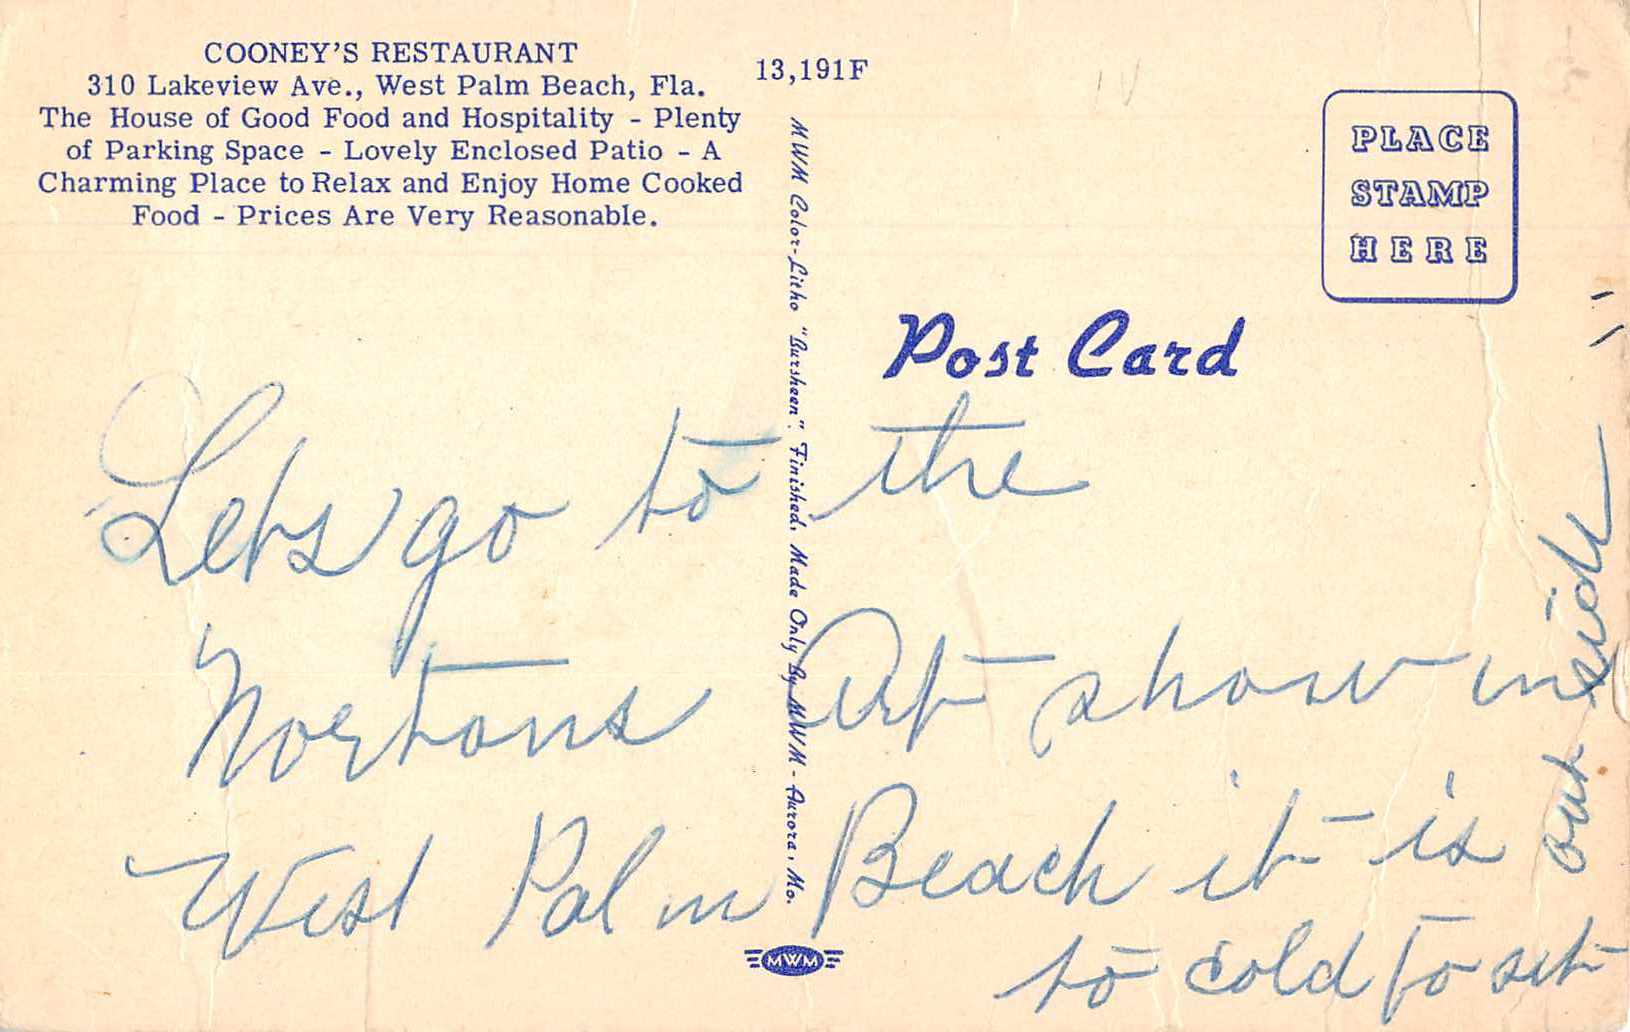 COONEY'S RESTAURANT
310 Lakeview Ave., West Palm Beach, Fla.
The House of Good Food and Hospitality - Plenty
of Parking Space - Lovely Enclosed Patio - A
Charming Place to Relax and Enjoy Home Cooked
Food - Prices Are Very Reasonable.
13,191F
MWM Color-Litho "Bursheen" Finished, Made Only By MWM - Aurora, Mo.
PLACE
STAMP
HERE
Post Card
Lets go to the
Nortons Art show in
West Palm Beach it is
to cold to set
out side
MWM